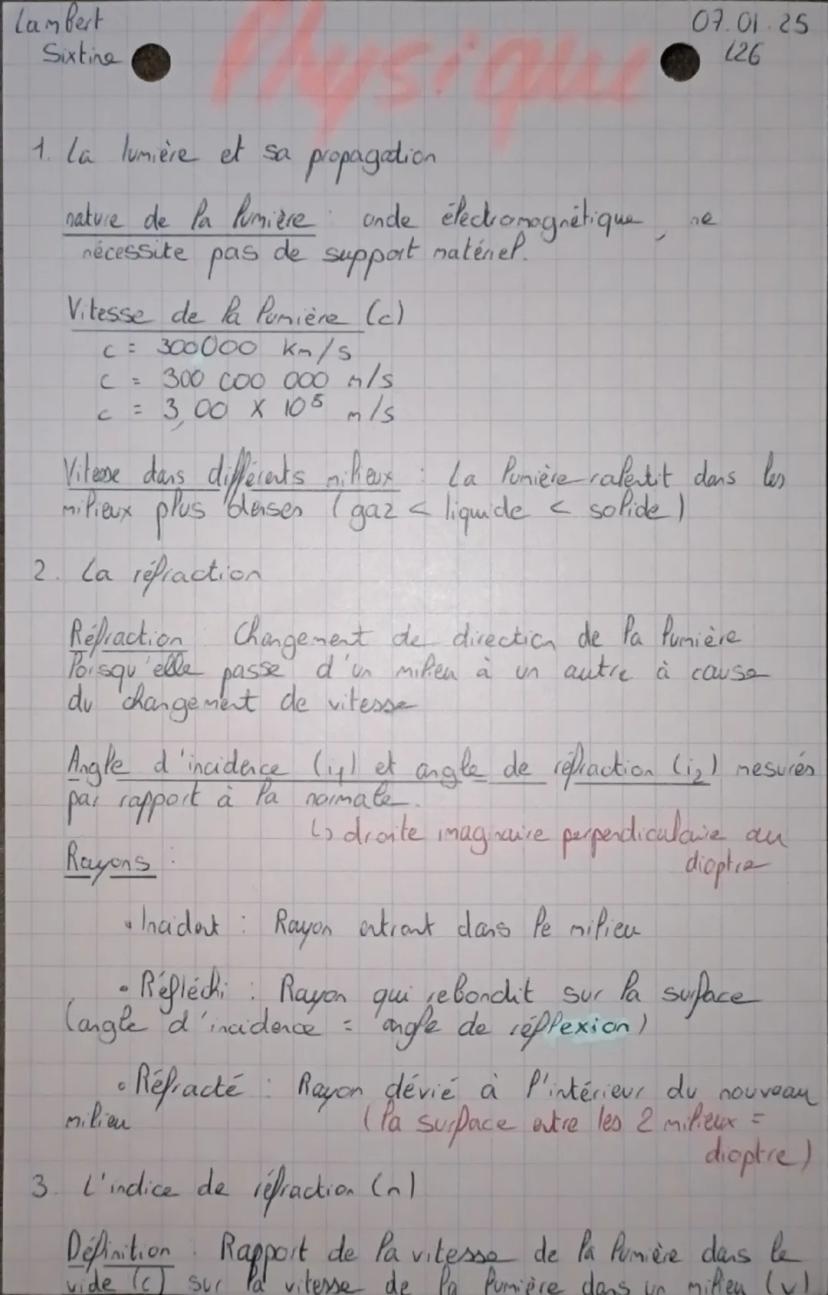 Lambert
07.01.25
Sixtine
L26
Physique
1. La lumière et sa propagation
nature de la lumière : onde électromagnétique, ne
nécessite pas de support matériel.
Vitesse de la lumière (c)
c = 300000 km/s
c = 300 000 000 m/s
c = 3,00 × 10⁸ m/s
Vitesse dans différents milieux : La lumière ralentit dans les
milieux plus denses (gaz < liquide < solide)
2. La réfraction
Réfraction : Changement de direction de la lumière
lorsqu'elle passe d'un milieu à un autre à cause
du changement de vitesse
Angle d'incidence (i1) et angle de réfraction (i2) mesurés
par rapport à la normale.
↳ droite imaginaire perpendiculaire au
dioptre
Rayons :
• Incident : Rayon entrant dans le milieu
• Réfléchi : Rayon qui rebondit sur la surface
(angle d'incidence = angle de réflexion)
• Réfracté : Rayon dévié à l'intérieur du nouveau
milieu (la surface entre les 2 milieux =
dioptre)
3. L'indice de réfraction (n)
Définition : Rapport de la vitesse de la lumière dans le
vide (c) sur la vitesse de la lumière dans un milieu (v)